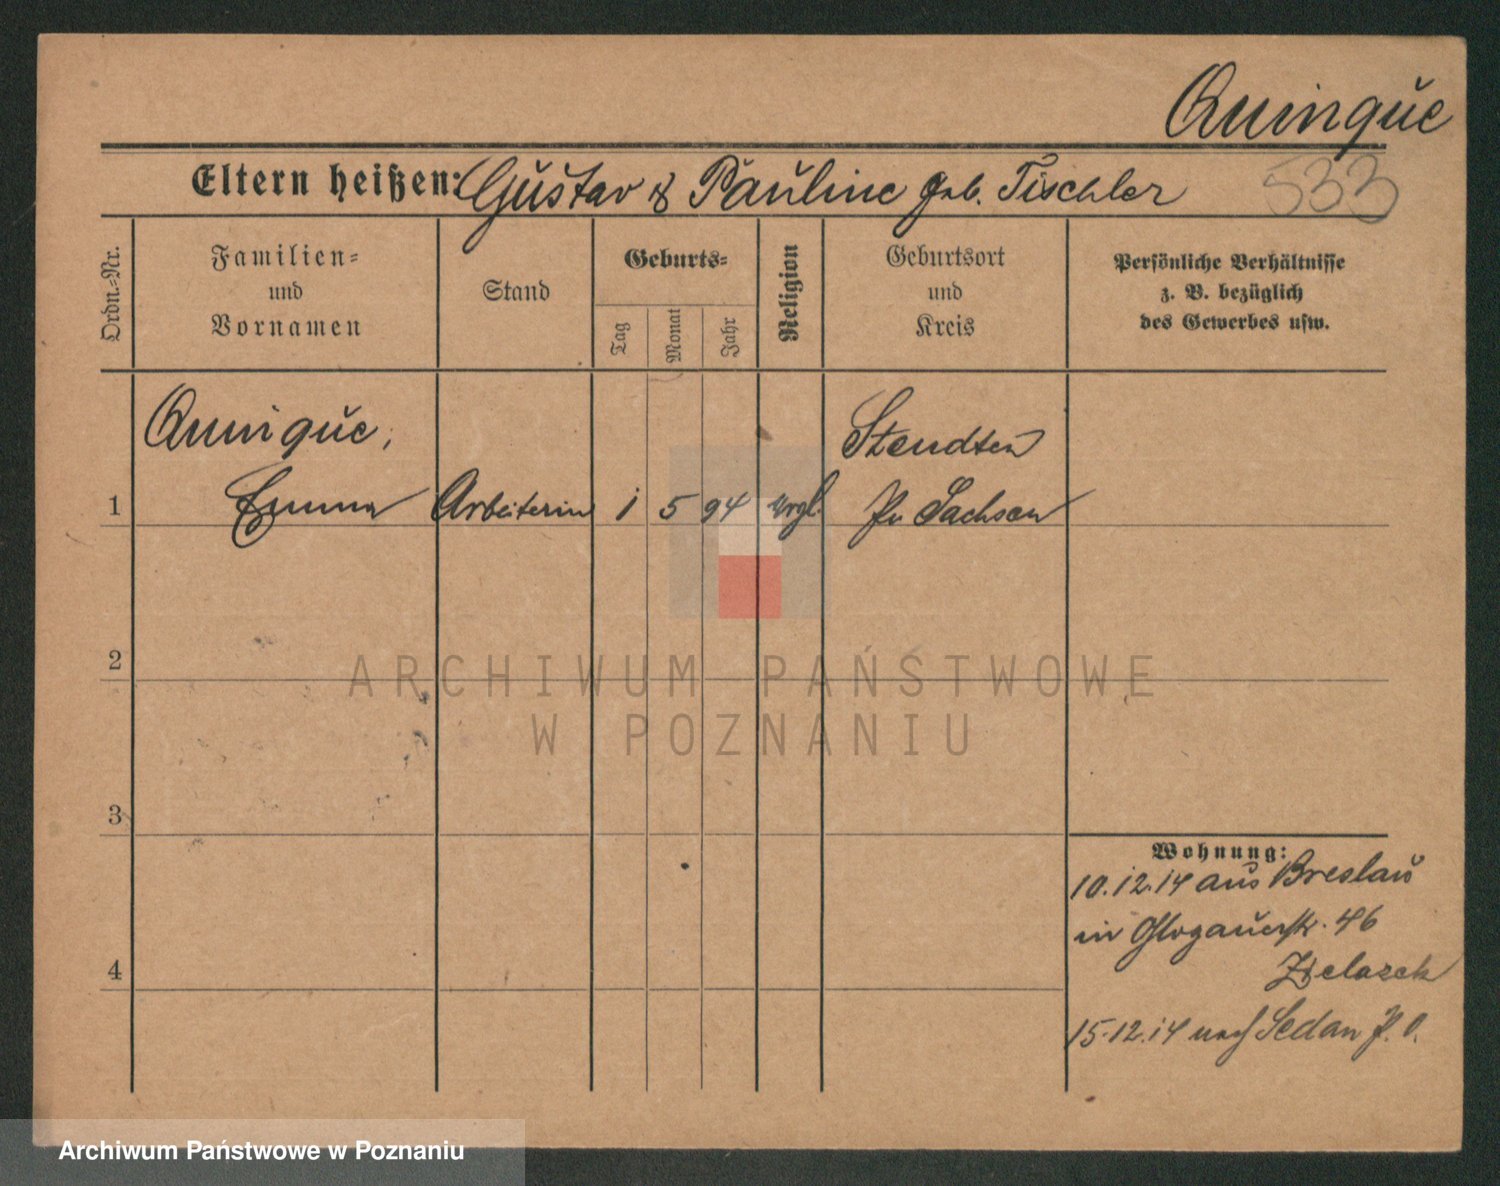 Quinque
Eltern heißen: Gustav & Pauline geb. Tischler
533
Ordn.-Nr.
Familien-
und
Vornamen
Stand
Geburts-
Tag
Monat
Jahr
Religion
Geburtsort
und
Kreis
Persönliche Verhältnisse
z. B. bezüglich
des Gewerbes usw.
Quinque,
1 Emma Arbeiterin 1 5 94
Pr Sachsen
2
3
4
ARCHIWUM PAŃSTWOWE
W POZNANIU
Wohnung:
10.12.14 aus Breslau
in Glogauerstr. 46
15.12.14 nach Sedan P. O.
Archiwum Państwowe w Poznaniu